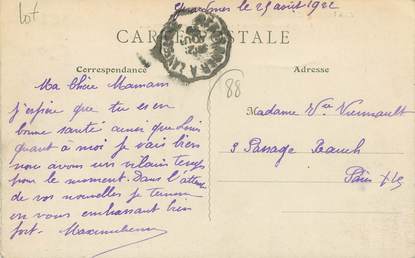 Lot
le 25 août 1922
CARTE POSTALE
Correspondance
Adresse
88
Ma Chère Maman
j'espère que tu es en
bonne santé ainsi que Louis
quant à moi je vais bien
nous avons un vilain temps
pour le moment. Dans l'attente
de vos nouvelles je termine
en vous embrassant bien
fort.
Madame Vve
3 Passage Rauch
Paris